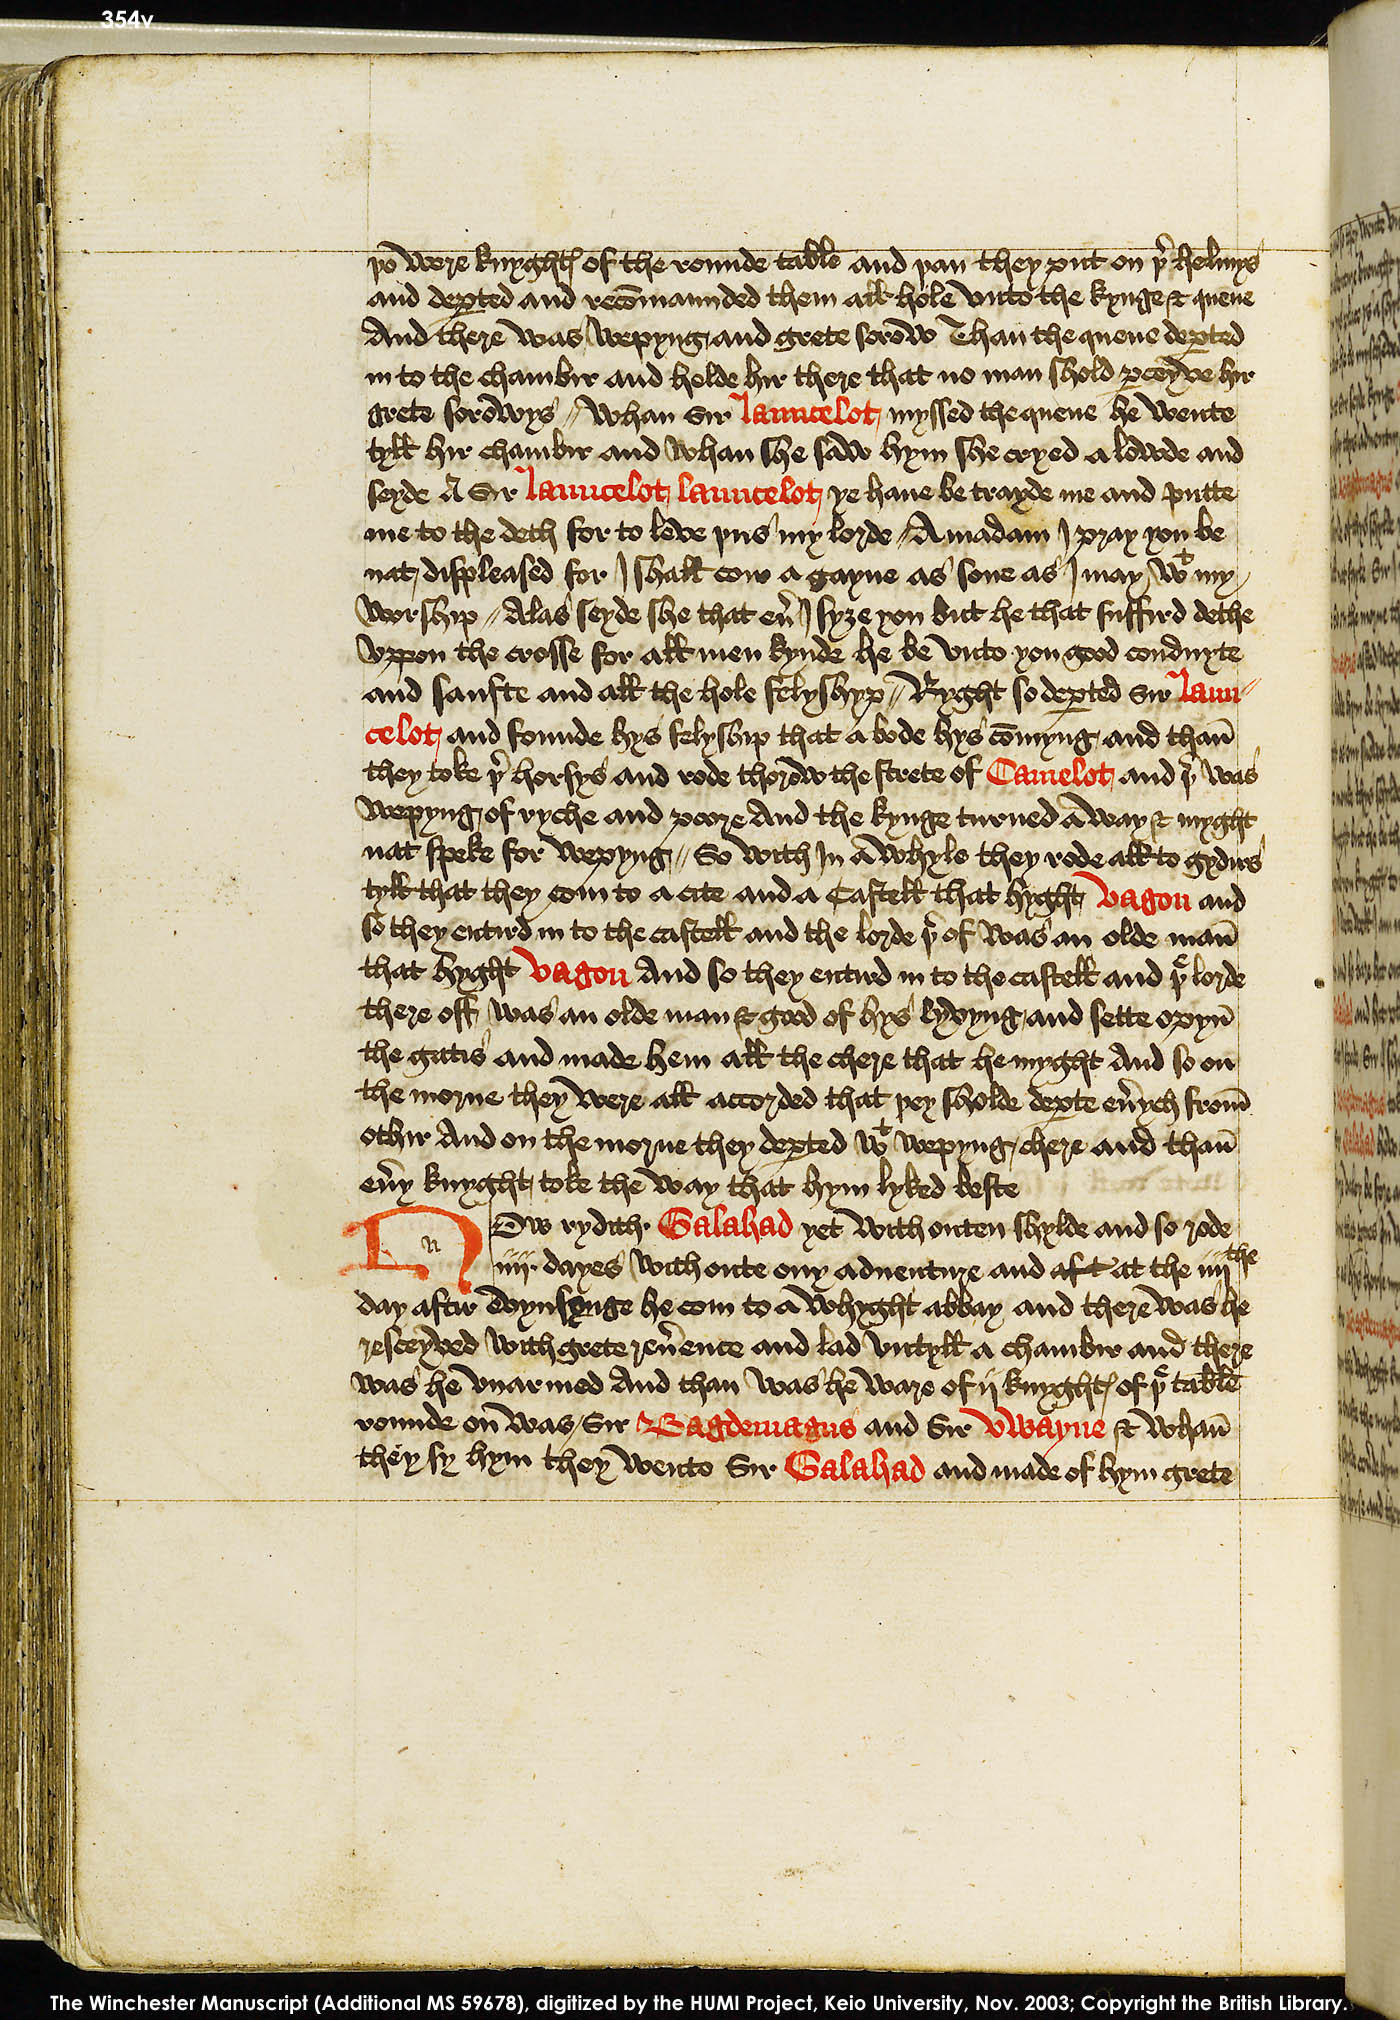 354v
þo were knyghtes of the rounde table and þan they put on þr helmys
and deꝑted and recōmaunded them all hole vnto the kynge & quene
And there was wepyng and grete sorow Than the quene deꝑted
in to the chambir and helde hir there that no man shold ꝑceyve hir
grete sorowys // Whan Sir Launcelot myssed the quene he wente
tyll hir chambir and whan she saw hym she cryed a lowde and
seyde A Sir Launcelot Launcelot ye haue be trayde me and putte
me to the deth for to leve þus my lorde // A madam I pray you be
nat displeased for I shall com a gayne as sone as I may wt my
worship // Alas seyde she that eu̾ I syze you but he that suffird dethe
vppon the crosse for all men kynde he be vnto you good conduyte
and saufte and all the hole felyshyp // Ryght so deꝑted Sir Laun//
celot and founde hys felyship that a bode hys cōmyng and than̄
they toke þr horsys and rode thorow the strete of Camelot and þr was
wepyng of ryche and poore And the kynge turned a way & myght
nat speke for wepyng // So with In a whyle they rode all to gydirs
tyll that they com to a cite and a Castell that hyght vagon and
so they entird in to the castell and the lorde þr of was an olde man̄
that hyght vagon And so they entird in to the castell and þe lorde
there off was an olde man & good of hys lyvyng and sette opyn̄
the gatis and made hem all the chere that he myght And so on
the morne they were all accorded that þey sholde deꝑte eu̾ych from̄
othir And on the morne they deꝑted wt wepyng chere and than̄
eu̾y knyght toke the way that hym lyked beste
N n Ow rydith Galahad yet with outen shylde and so rode
iiij dayes with oute ony aduenture and aft at the iiijthe
day aftir evynsonge he com to a whyght abbay and there was he
resceyved with grete reu̾ence and lad vntyll a chambir and there
was he vnarmed And than was he ware of ij knyghtes of þe table
rounde on was Sir Bagdemagus and Sir vwayne & whan̄
they sy hym they wente to Sir Galahad and made of hym grete
The Winchester Manuscript (Additional MS 59678), digitized by the HUMI Project, Keio University, Nov. 2003; Copyright the British Library.